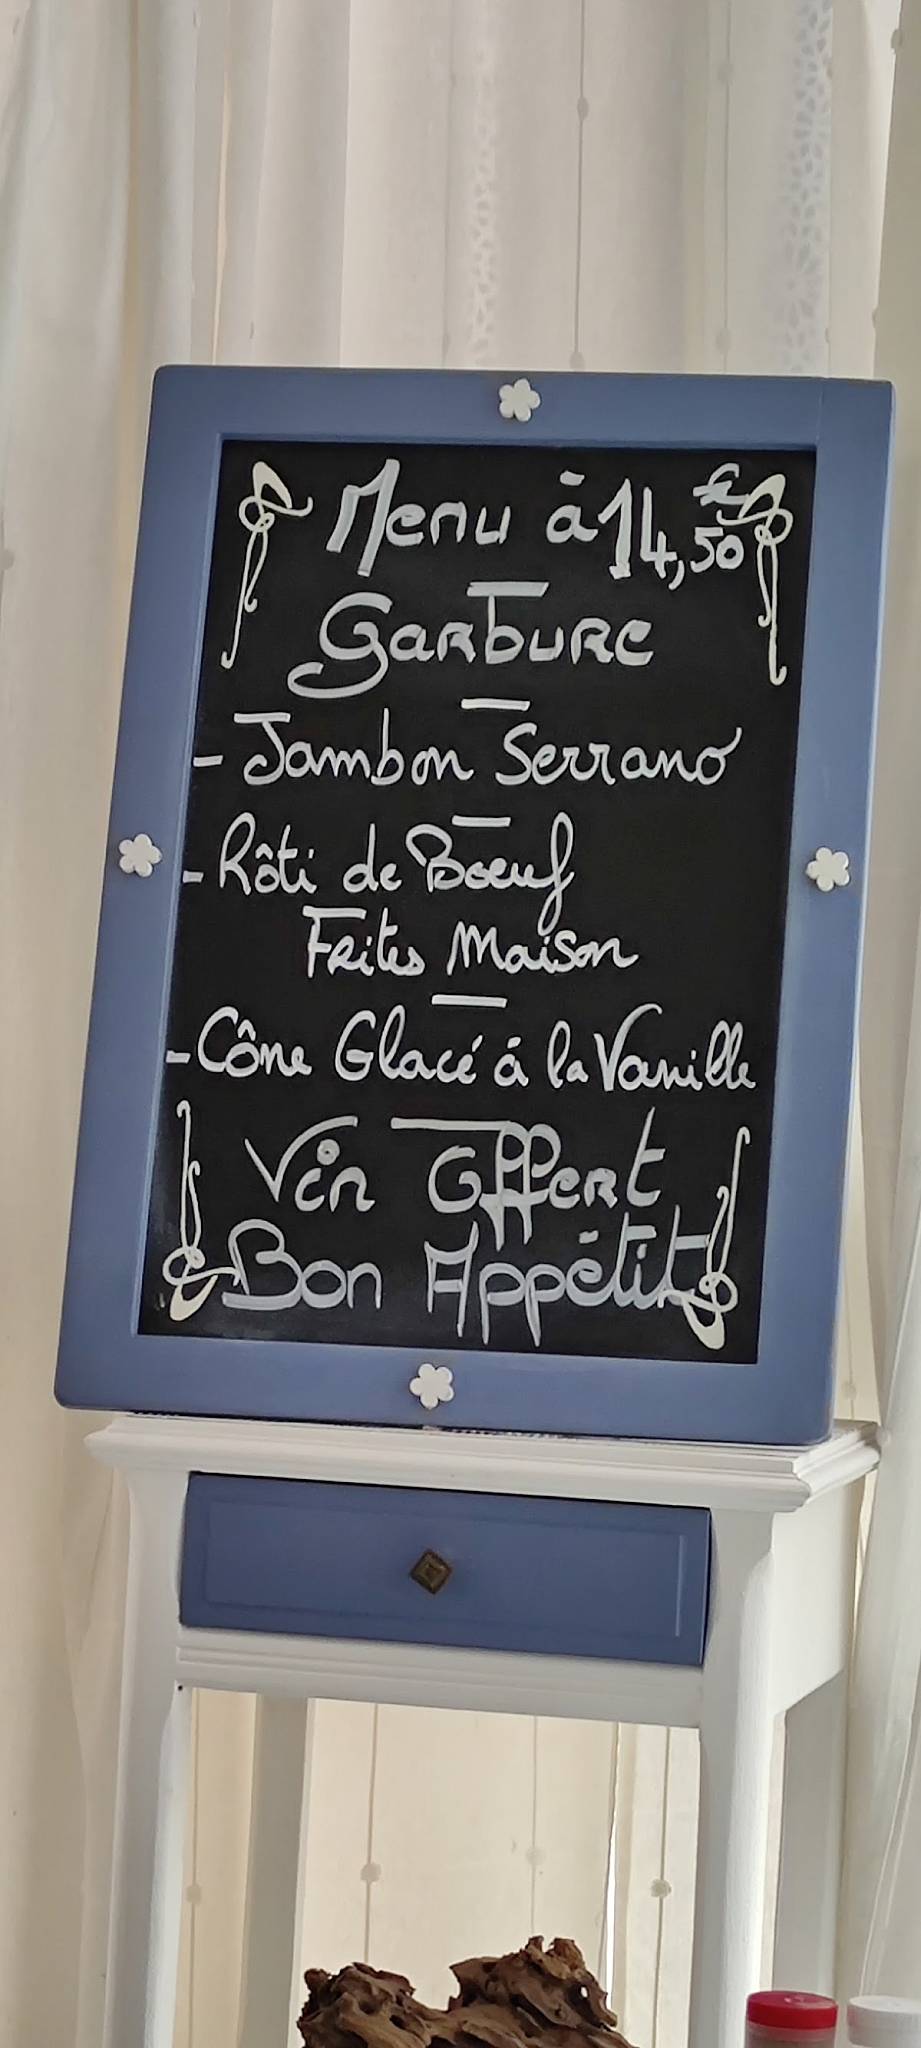 Menu à 14,50€
Garbure
- Jambon Serrano
- Rôti de Boeuf
Frites Maison
- Cône Glacé à la Vanille
Vin Offert
Bon Appétit